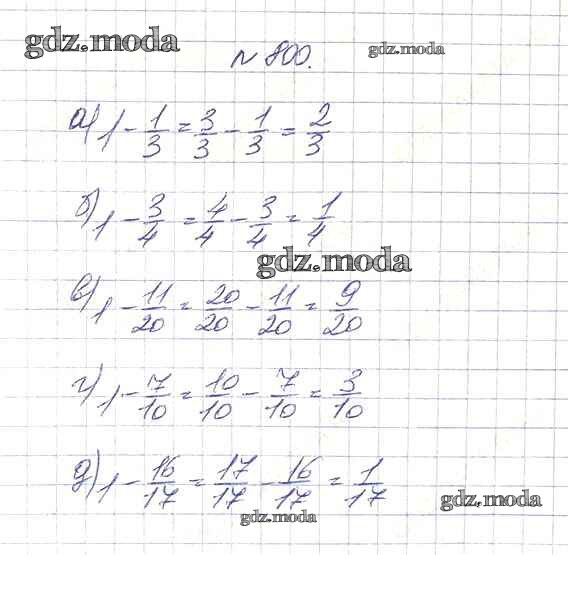 gdz.moda
№ 800.
gdz.moda
а) 1 - 1/3 = 3/3 - 1/3 = 2/3
б) 1 - 3/4 = 4/4 - 3/4 = 1/4
gdz.moda
в) 1 - 11/20 = 20/20 - 11/20 = 9/20
г) 1 - 7/10 = 10/10 - 7/10 = 3/10
д) 1 - 16/17 = 17/17 - 16/17 = 1/17
gdz.moda
gdz.moda